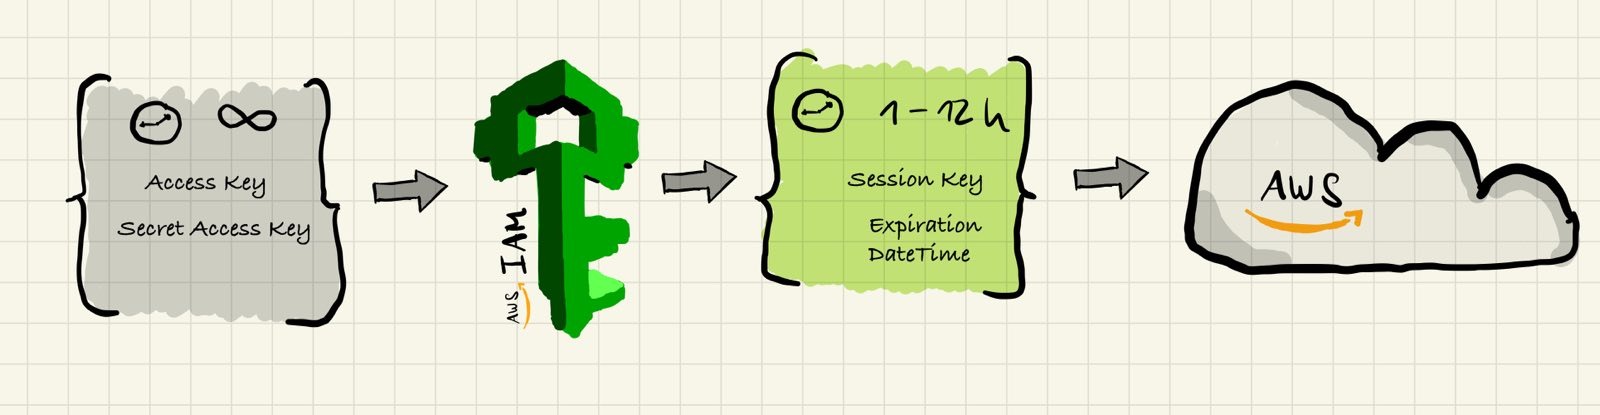 ∞
Access Key
Secret Access Key
AWS IAM
1-12h
Session Key
Expiration
DateTime
AWS